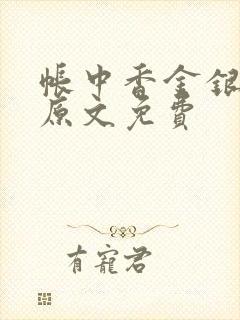 帳中香金銀
原文免費
有寵君